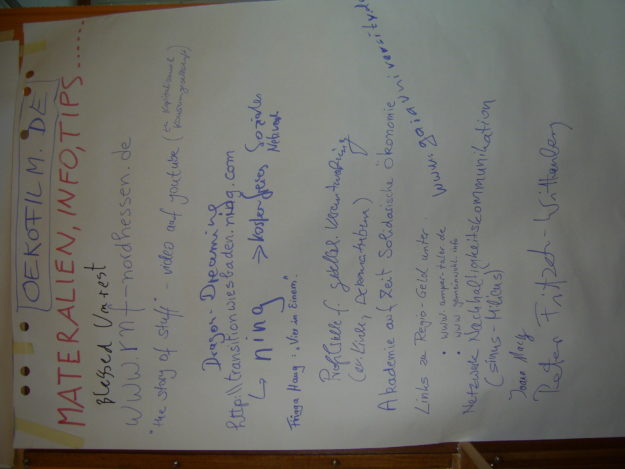 OEKOFILM.DE
MATERALIEN, INFO, TIPS......
Blessed Unrest
www.rmf-nordhessen.de
"the story of stuff" - video auf youtube (
Dragon-Dreaming
http://transitionwiesbaden.ning.com
↳ ning → kostenfreies Soziales Netzwerk
Frigga Haug: „Vier in Einem"
Profilstelle f. gesellsch. Verantwortung
(ev. Kirche,
Akademie auf Zeit Solidarische Ökonomie
Links zu Regio-Geld unter
• www.amper-taler.de
• www.gemeinwohl.info
www.gaiauniversity.de
Netzwerk Nachhaltigkeitskommunikation
(sinus-Milieus)
Joana Macy
Peter Fritzsch-Wittenberg